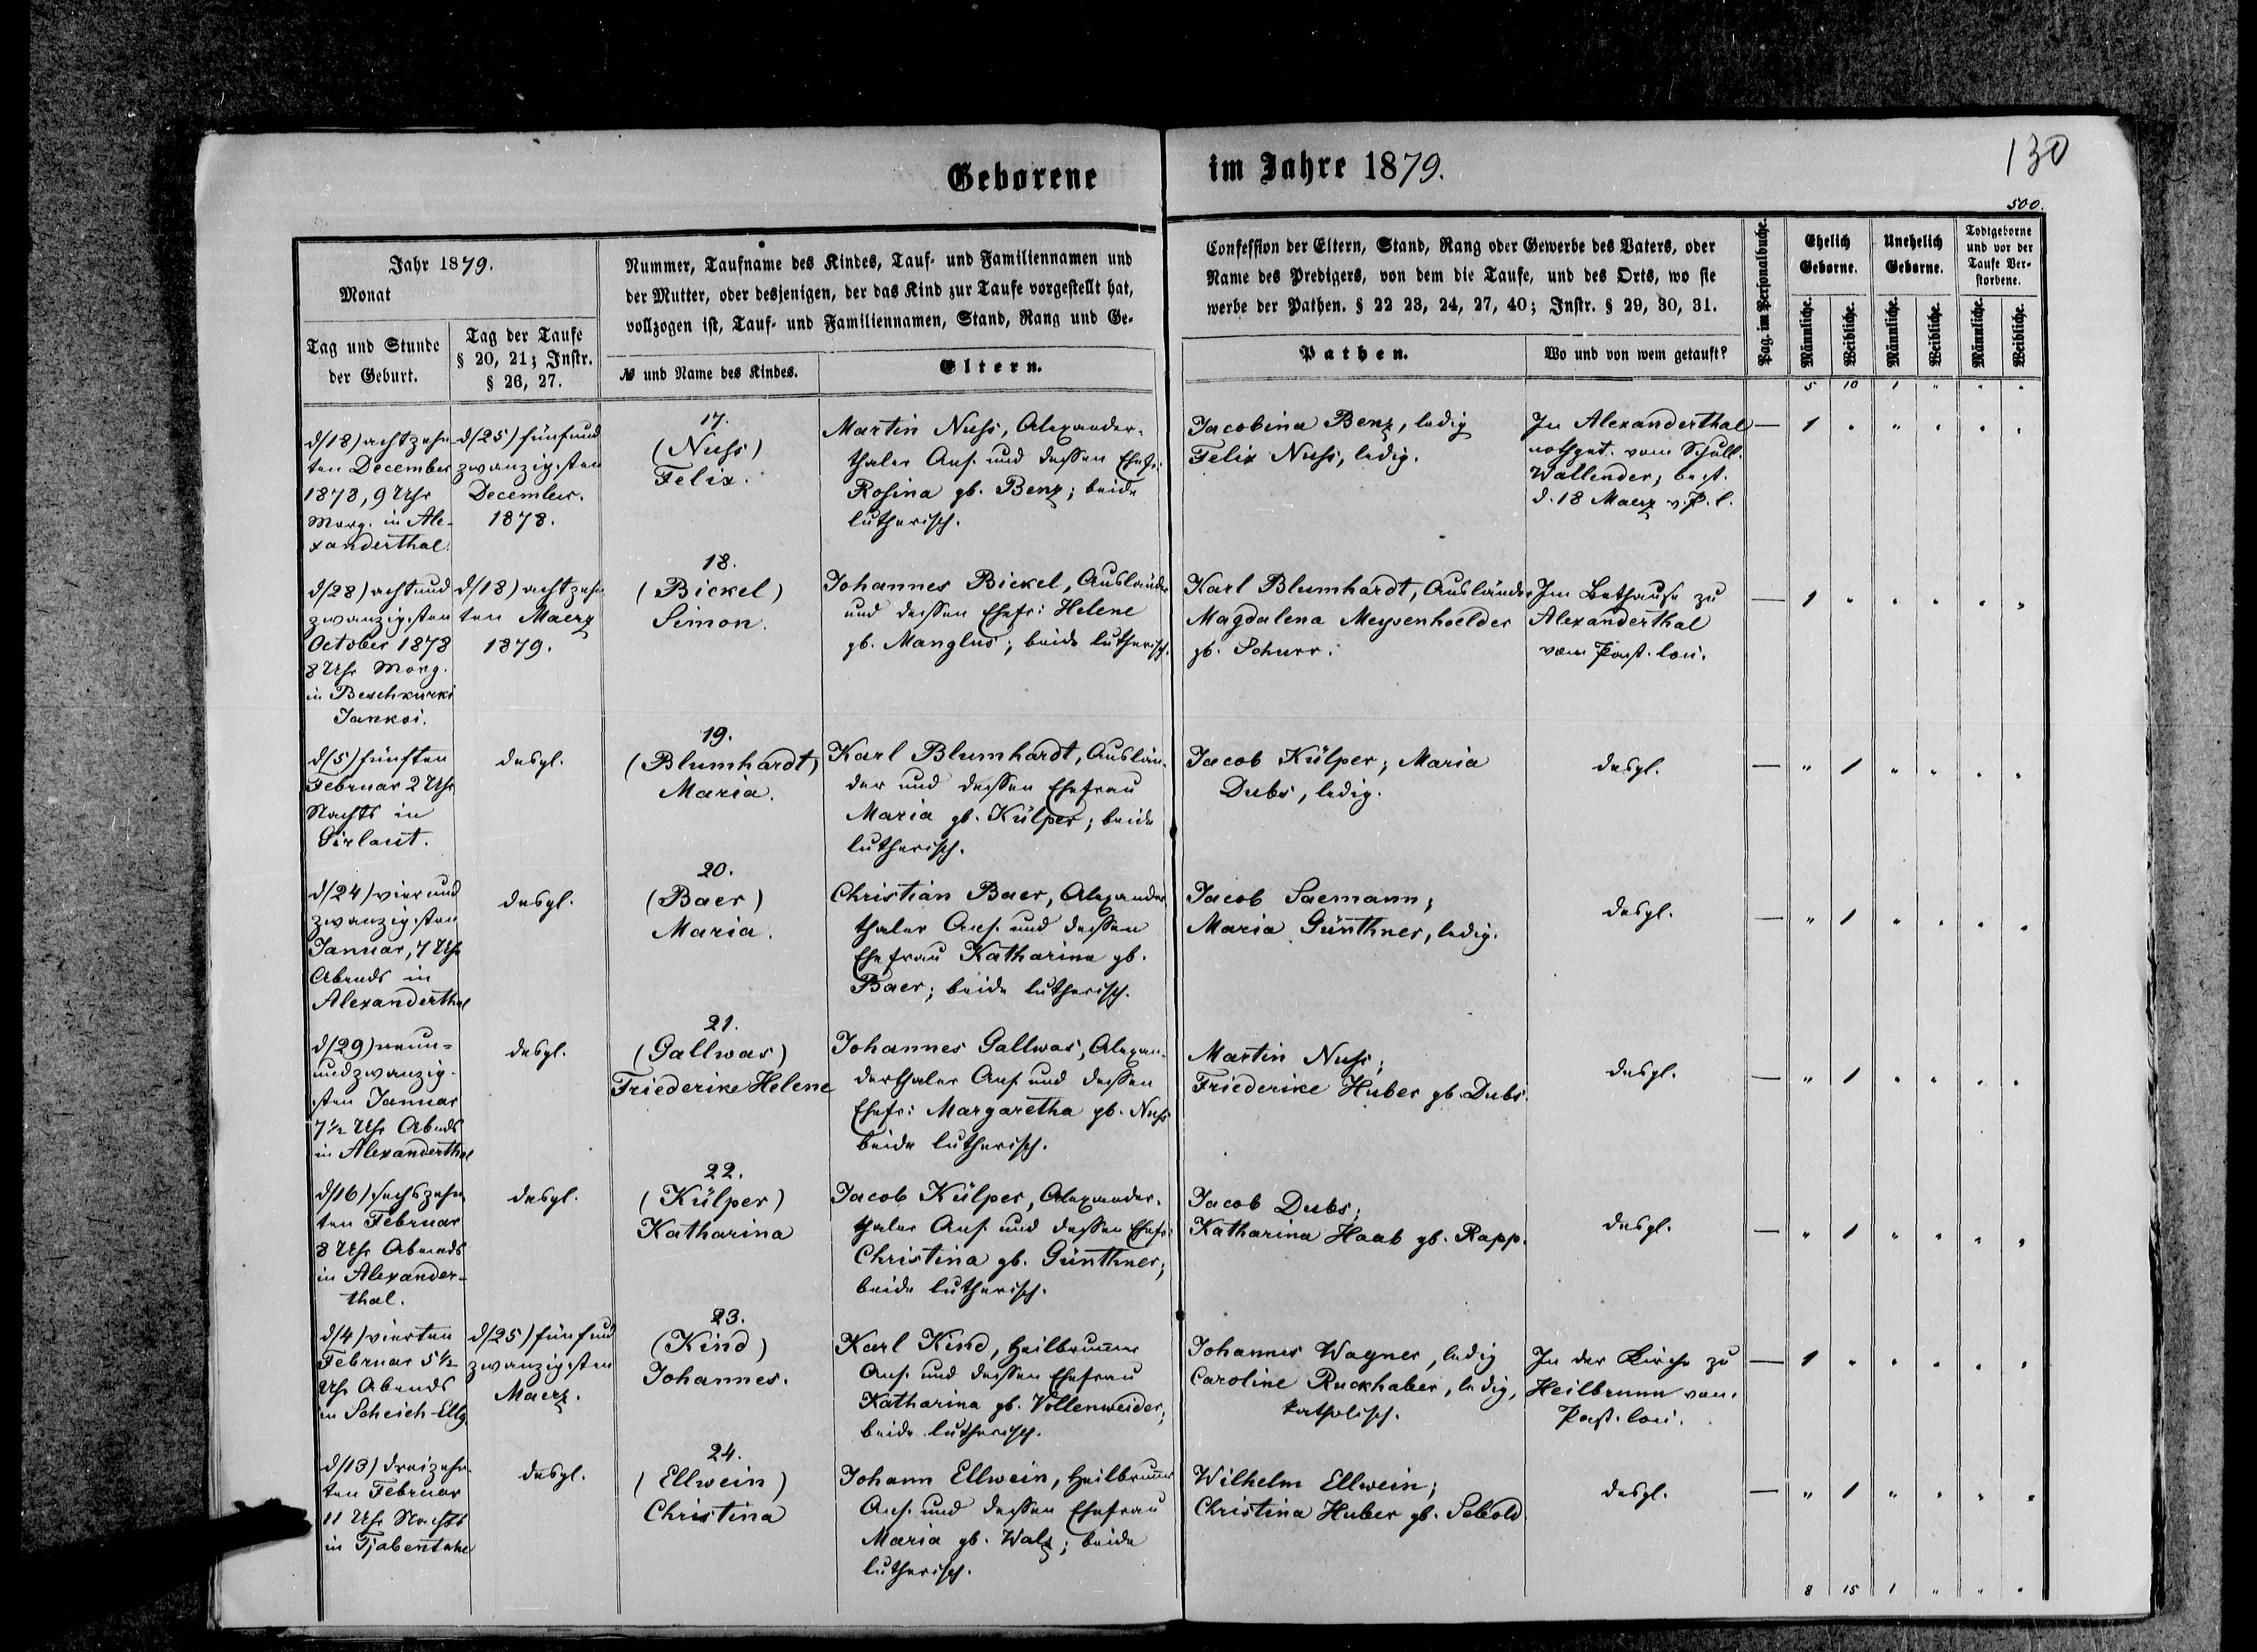 130
500.
Geborene im Jahre 1879.
Jahr 1879.
Monat
Tag und Stunde
der Geburt.
Tag der Taufe
§ 20, 21; Instr.
§ 26, 27.
Nummer, Taufname des Kindes, Tauf- und Familiennamen und
der Mutter, oder desjenigen, der das Kind zur Taufe vorgestellt hat,
vollzogen ist, Tauf- und Familiennamen, Stand, Rang und Ge-
№ und Name des Kindes.
Eltern.
Confession der Eltern, Stand, Rang oder Gewerbe des Vaters, oder
Name des Predigers, von dem die Taufe, und des Orts, wo sie
werbe der Pathen. § 22 23, 24, 27, 40; Instr. § 29, 30, 31.
Pathen.
Wo und von wem getauft?
Pag. im Personalbuche.
Ehelich
Geborne.
Unehelich
Geborne.
Todtgeborne
und vor der
Taufe Ver-
storbene.
Männliche.
Weibliche.
Männliche.
Weibliche.
Männliche.
Weibliche.
5 10 1 " " "
d/18) achtzehn
ten December
1878, 9 Uhr
Morg. in Ale-
xanderthal.
d/25) fünfund
zwanzigsten
December.
1878.
17.
(Nuss)
Felix.
Martin Nuss, Alexander-
thaler Ans. und dessen Ehefr:
Rosina gb. Benz; beide
lutherisch.
Jacobina Benz, ledig
Felix Nuss, ledig.
In Alexanderthal
nothget. vom Schull.
Wallender; best.
d. 18 Maerz v. P. l.
— 1 " " " " "
d/28) achtund
zwanzigsten
October 1878
8 Uhr Morg.
in Beschkurki
Jankoi.
d/18) achtzehn
ten Maerz
1879.
18.
(Bickel)
Simon.
Johannes Bickel, Ausländer
und dessen Ehefr: Helene
gb. Manglus; beide lutherisch.
Karl Blumhardt, Ausländer
Magdalena Meysenhoelder
gb. Schurr.
Im Bethause zu
Alexanderthal
vom Past. loci.
— 1 " " " " "
d/5) fünften
Februar 2 Uhr
Nachts in
Girlaut.
desgl.
19.
(Blumhardt)
Maria.
Karl Blumhardt, Auslän-
der und dessen Ehefrau
Maria gb. Külper; beide
lutherisch.
Jacob Külper; Maria
Dubs, ledig.
desgl.
— " 1 " " " "
d/24) vierund
zwanzigsten
Januar, 7 Uhr
Abends in
Alexanderthal
desgl.
20.
(Baer)
Maria.
Christian Baer, Alexander
thaler Ans. und dessen
Ehefrau Katharina gb.
Baer; beide lutherisch.
Jacob Saemann;
Maria Günthner, ledig.
desgl.
— " 1 " " " "
d/29) neun-
undzwanzig-
sten Januar
7½ Uhr Abends
in Alexanderthal
desgl.
21.
(Gallwas)
Friederike Helene
Johannes Gallwas, Alexan-
derthaler Ans. und dessen
Ehefr: Margaretha gb. Nuss
beide lutherisch.
Martin Nuss;
Friederike Huber gb. Dubs.
desgl.
— " 1 " " " "
d/16) sechszehn
ten Februar
8 Uhr Abends
in Alexander-
thal.
desgl.
22.
(Külper)
Katharina
Jacob Külper, Alexander-
thaler Ans. und dessen Ehefr:
Christina gb. Günthner;
beide lutherisch.
Jacob Dubs;
Katharina Haab gb. Rapp.
desgl.
— " 1 " " " "
d/4) vierten
Februar 5½
Uhr Abends
in Scheich-Elly
d/25) fünfund
zwanzigsten
Maerz.
23.
(Kind)
Johannes.
Karl Kind, Heilbrunner
Ans. und dessen Ehefrau
Katharina gb. Vollenweider;
beide lutherisch.
Johannes Wagner, ledig
Caroline Ruckhaber, ledig,
katholisch.
In der Kirche zu
Heilbrunn vom
Past. loci.
— 1 " " " " "
d/13) dreizehn
ten Februar
11 Uhr Nachts
in Tjabentahe
desgl.
24.
(Ellwein)
Christina
Johann Ellwein, Heilbrunner
Ans. und dessen Ehefrau
Maria gb. Walz; beide
lutherisch.
Wilhelm Ellwein;
Christina Huber gb. Sebold.
desgl.
— " 1 " " " "
8 15 1 " " "